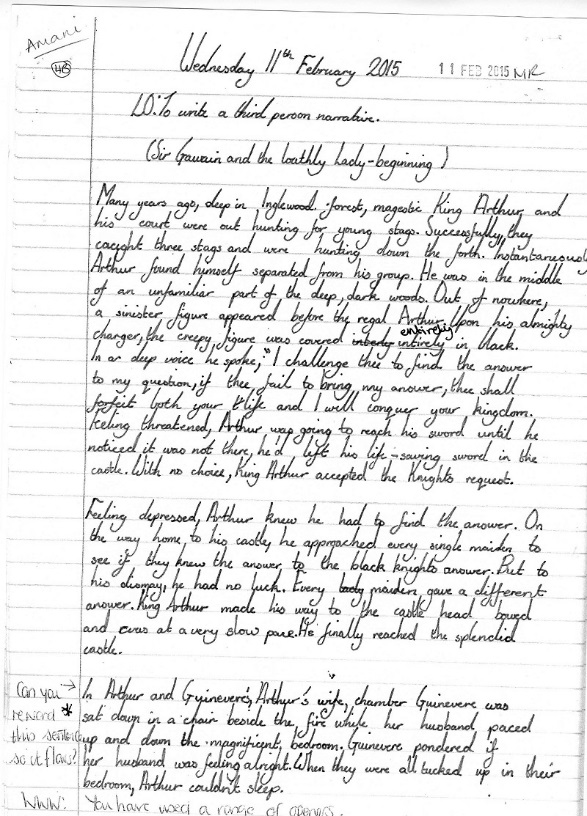 Amani
4B
Wednesday 11th February 2015
11 FEB 2015 MR
LO: To write a third person narrative.
(Sir Gawain and the loathly Lady - beginning)
Many years ago, deep in Inglewood forest, magestic King Arthur, and
his court were out hunting for young stags. Successfully, they
caught three stags and were hunting down the forth. Instantaneously
Arthur found himself separated from his group. He was in the middle
of an unfamiliar part of the deep, dark woods. Out of nowhere,
a sinister figure appeared before the regal Arthur. Upon his almighty
entirely
charger, the creepy figure was covered intirely in black.
In a deep voice he spoke, "I challenge thee to find the answer
to my question, if thee fail to bring my answer, thee shall
forfeit both your life and I will conquer your kingdom.
Feeling threatened, Arthur was going to reach his sword until he
noticed it was not there, he'd left his life-saving sword in the
castle. With no choice, King Arthur accepted the Knights request.
Feeling depressed, Arthur knew he had to find the answer. On
the way home, to his castle, he approached every single maiden to
see if they knew the answer to the black knights answer. But to
his dismay, he had no luck. Every lady maiden gave a different
answer. King Arthur made his way to the castle head bowed
and was at a very slow pace. He finally reached the splendid
castle.
In Arthur and Guinevere's, Arthur's wife, chamber Guinevere was
sat down in a chair beside the fire while her husband paced
up and down the magnificent, bedroom. Guinevere pondered if
her husband was feeling alright. When they were all tucked up in their
bedroom, Arthur couldn't sleep.
Can you →
reword *
this sentence
so it flows?
WWW: You have used a range of openers.